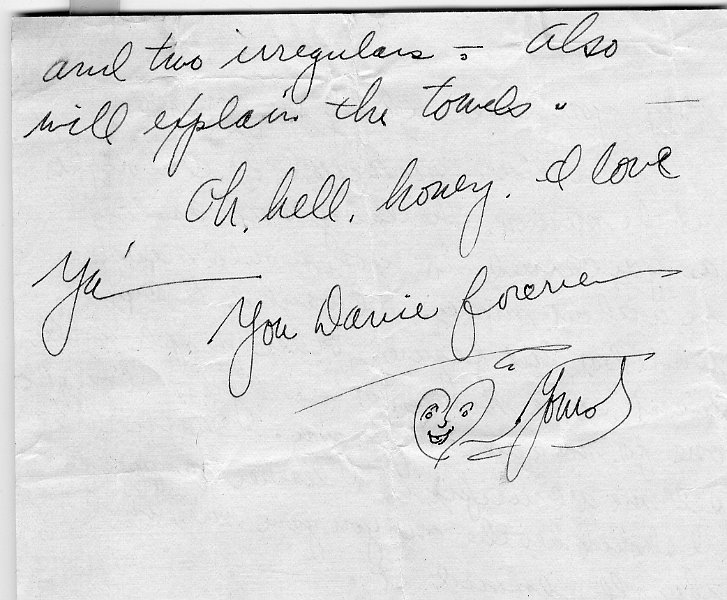 and two irregulars - Also
will explain the towels.
Oh, hell, honey, I love
Ya'
You Davie forever
Yours